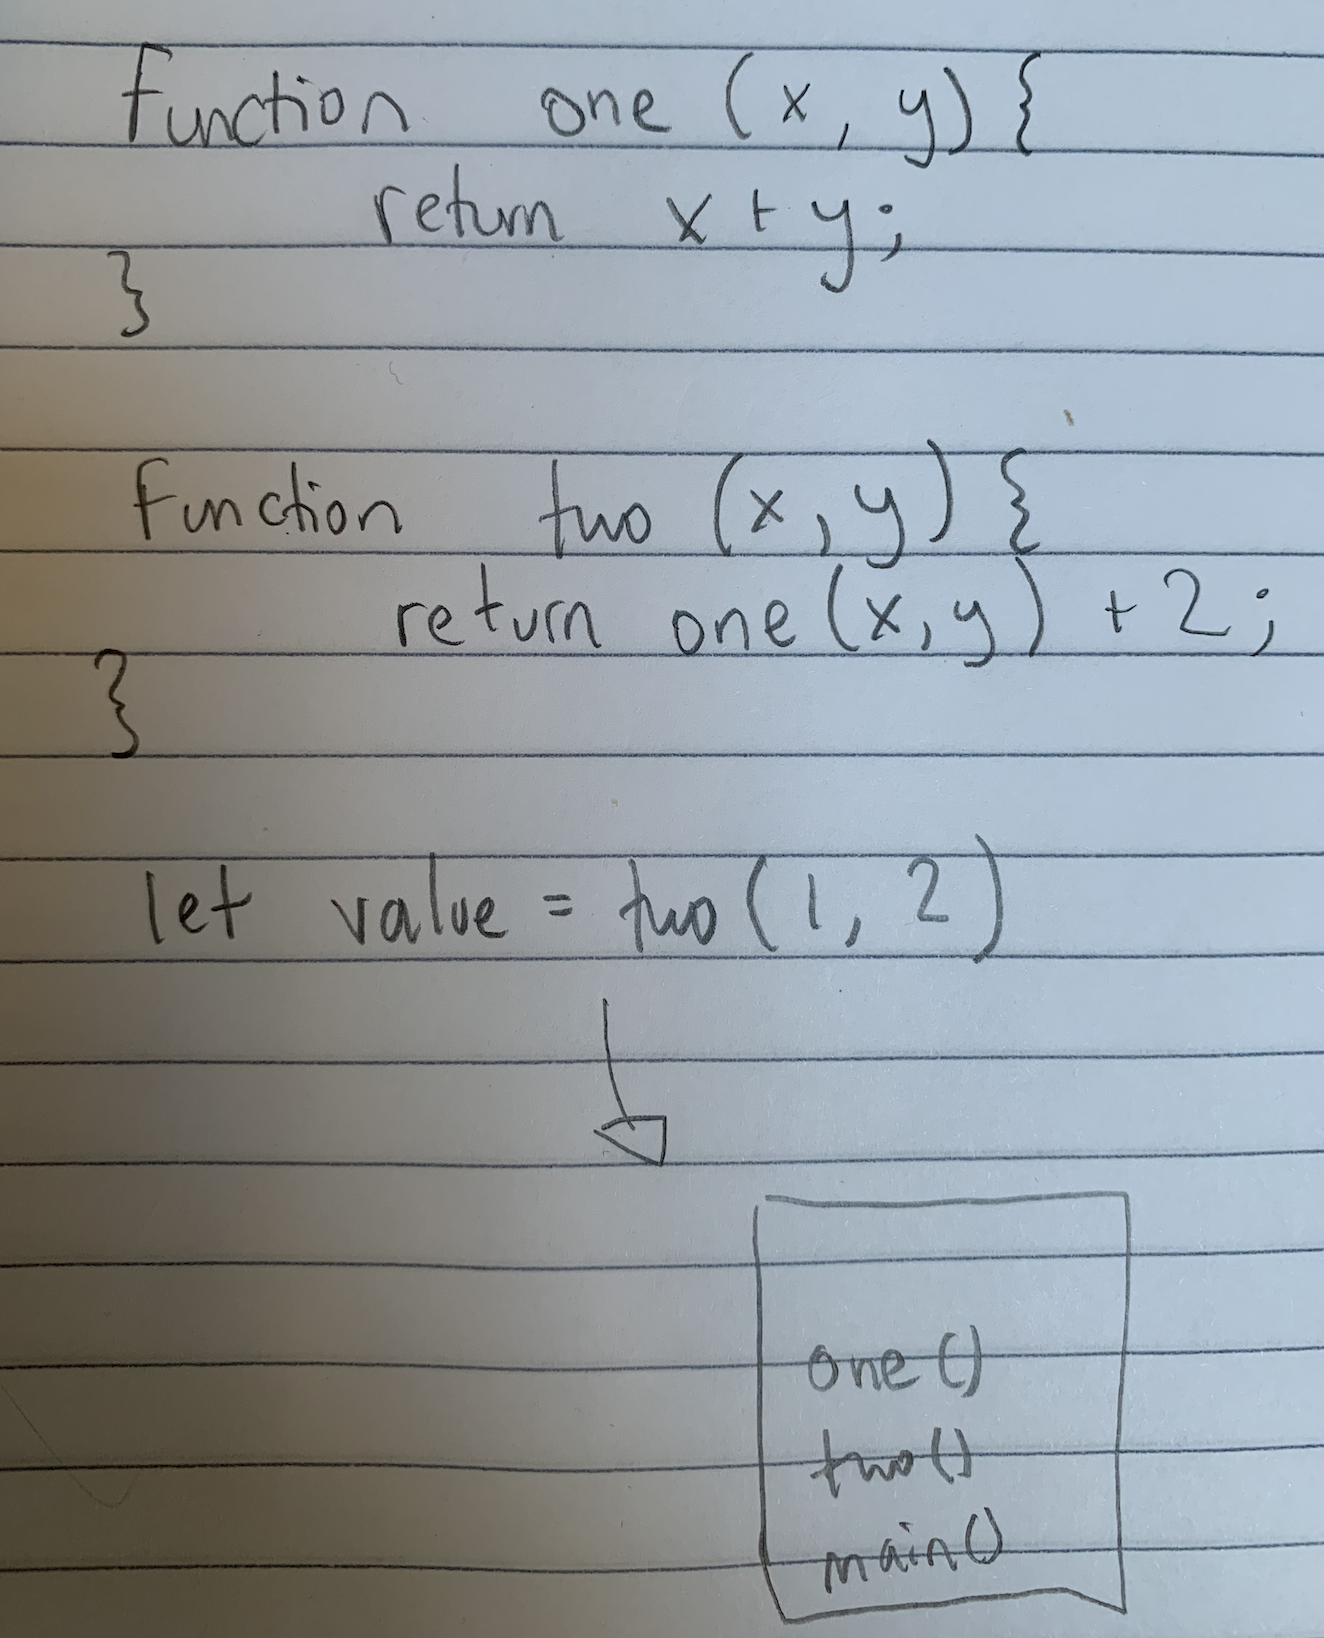 function one (x, y) {
return x + y;
}
function two (x, y) {
return one (x, y) + 2;
}
let value = two (1, 2)
one ()
two ()
main ()